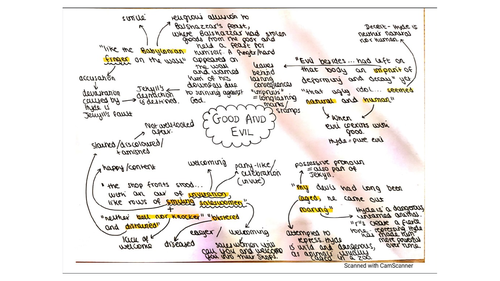 simile
religious allusion to
Balshazzar's feast,
where Balshazzar had stolen
goods from the poor and
held a feast for
himself. A finger/hand
appeared on
the wall
and warned
him of his
downfall due
to sinning against
God.
"like the Babylonian
finger on the wall"
accusation
devastation
caused by
Hyde is
Jekyll's fault
Jekyll's
destruction
is destined.
leaves
behind
lasting
consequences
"imprint"
= longlasting
marks/
stamps
Deceit - Hyde is
neither natural
nor human
"Evil besides... had left on
that body an imprint of
deformity and decay"
"that ugly idol... seemed
natural and human"
When
evil coexists with
good.
Hyde = pure evil
GOOD AND
EVIL
Not well-looked
after.
stained/discoloured/
tarnished
happy/content
welcoming
party-like/
celebration
(invite)
"the shop fronts stood...
with an air of invitation,
like rows of smiling saleswomen"
"neither bell nor knocker" "blistered
and distained"
lack of
welcome
diseased
eager / welcoming
saleswomen who
call you and welcome
you into their shops.
possessive pronoun
= also part of
Jekyll.
"my devil had long been
caged, he came out
roaring"
Hyde is a dangerous,
untamed animal.
"r"s create a fierce
tone, representing Hyde
has made him
more powerful
over time.
attempted to
repress. Hyde
is wild and dangerous,
as animals usually
caged in a zoo
Scanned with CamScanner